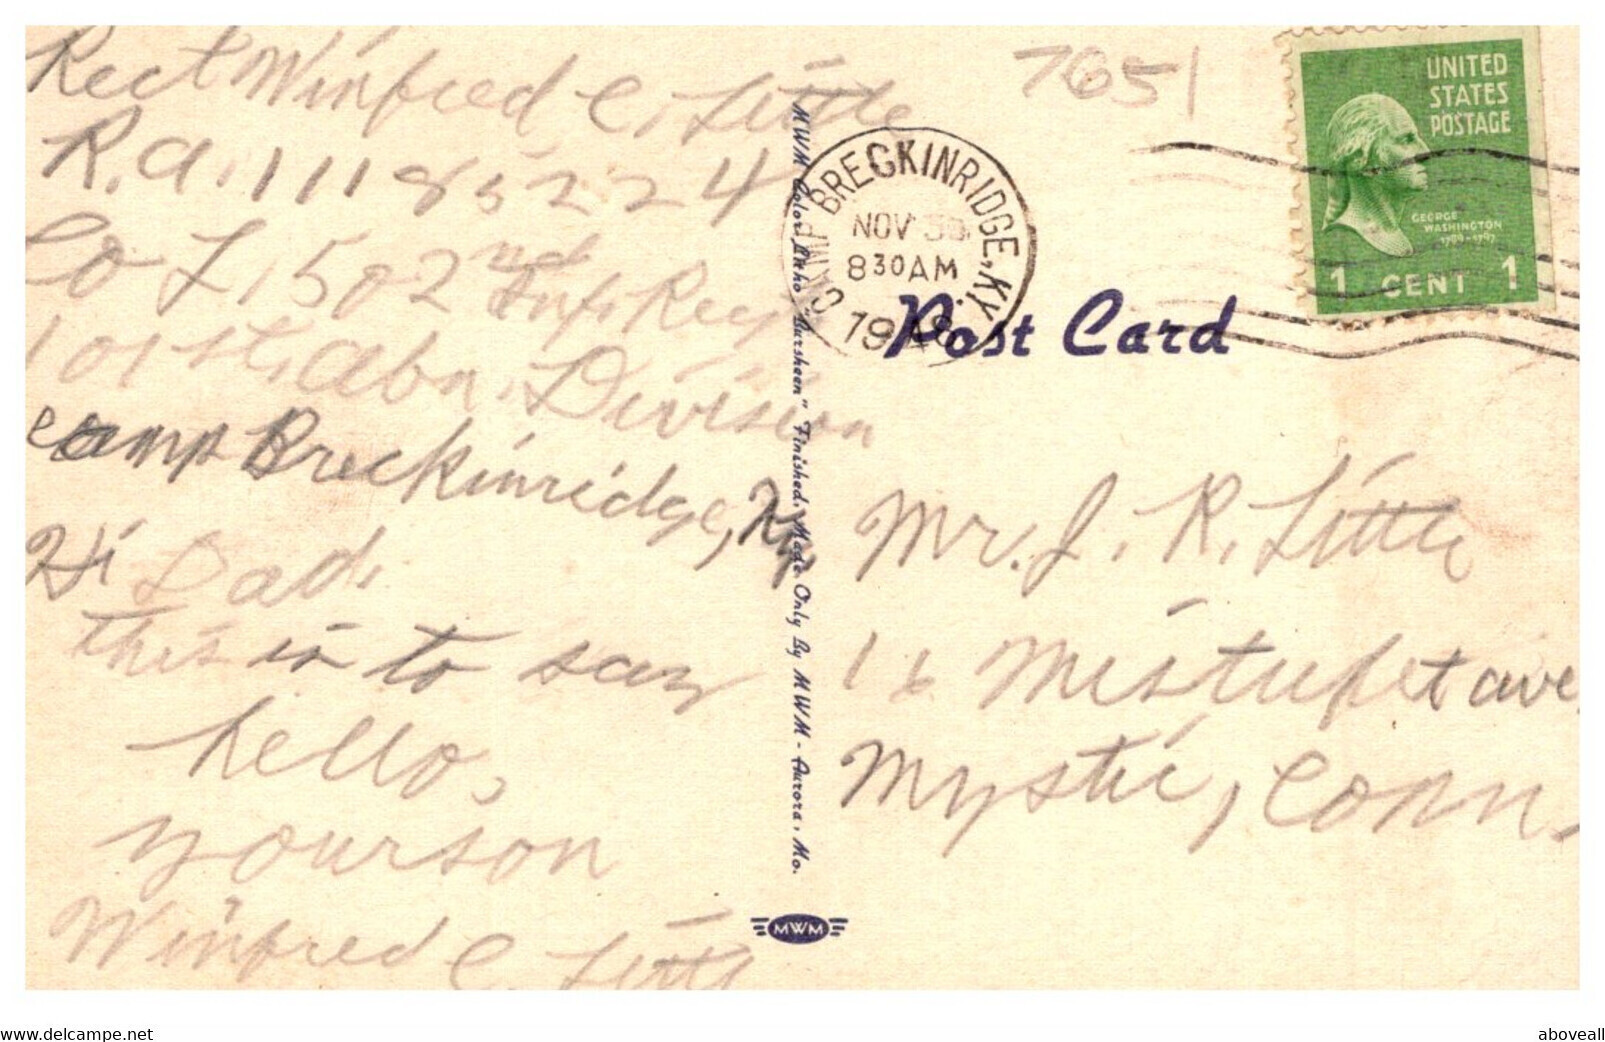 Rect Winfred C. Little
R.A. 11185224
Co I, 502nd Inf. Reg
101st Abn. Division
Camp Breckinridge, Ky.
Hi Dad.
this is to say
hello,
yourson
Winfred C. Little
MWM Color-Litho "Dursheen" Finished. Made Only By MWM - Aurora, Mo.
MWM
7651
CAMP BRECKINRIDGE, KY.
NOV 30
830AM
1948
UNITED
STATES
POSTAGE
GEORGE
WASHINGTON
1789-1797
1 CENT 1
Post Card
Mr. J. R. Little
16 Mistuxet ave,
Mystic, Conn.
www.delcampe.net
aboveall